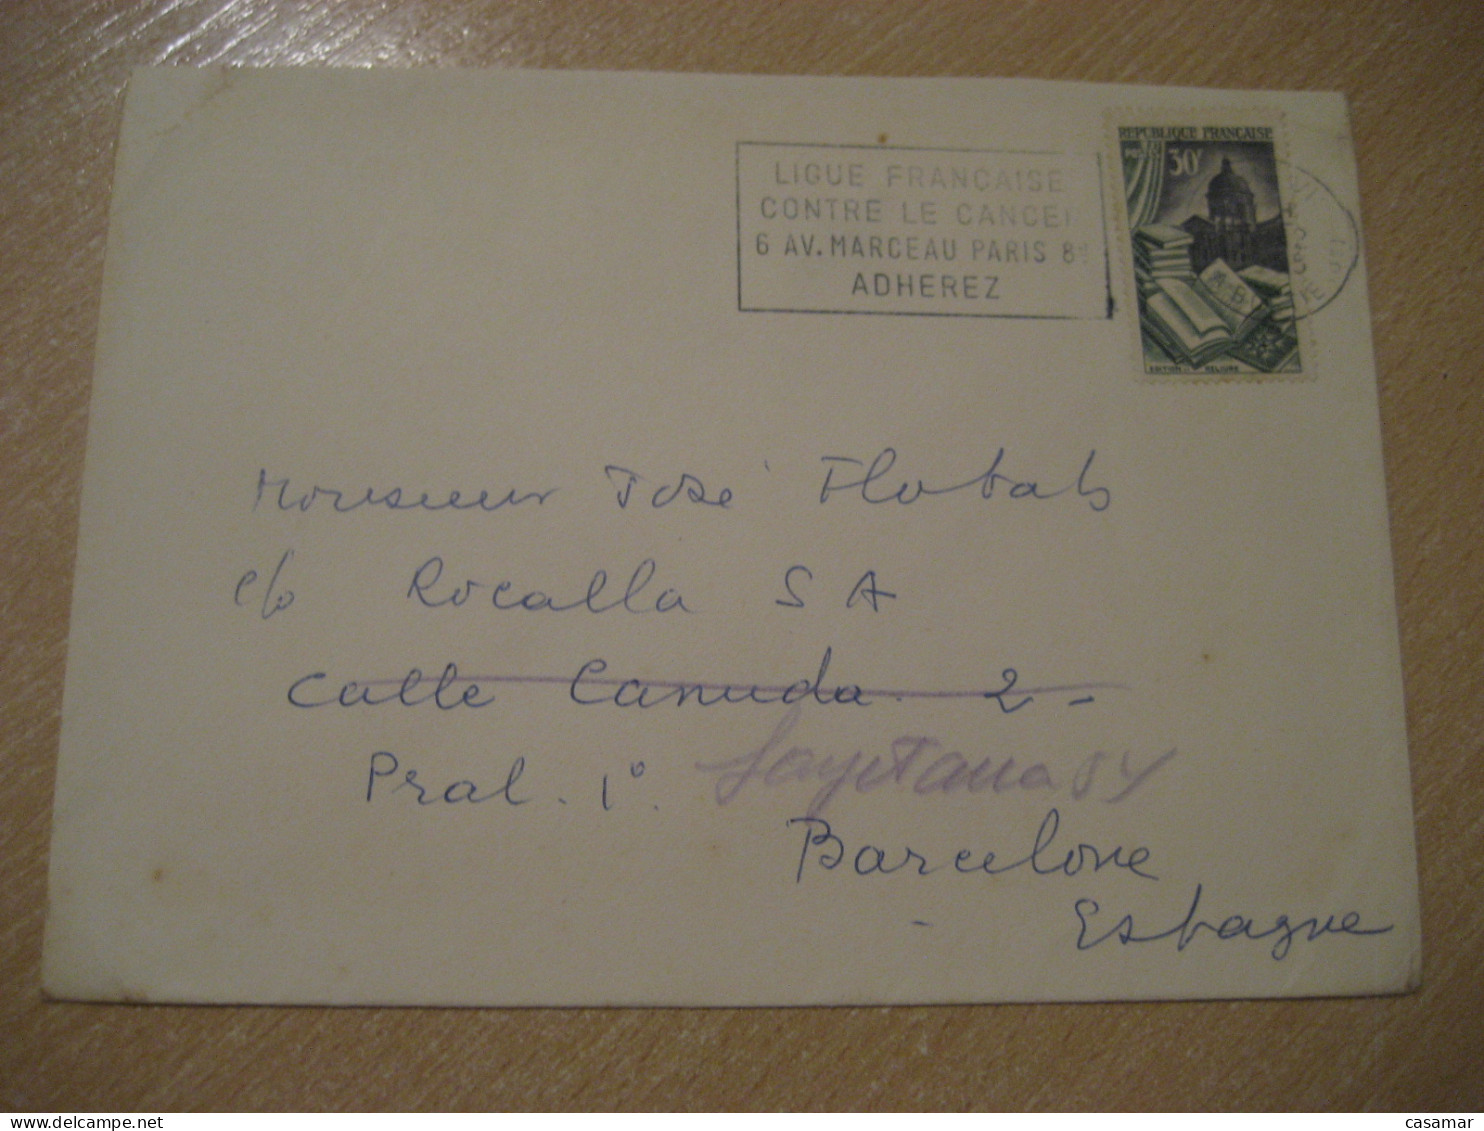 REPUBLIQUE FRANÇAISE
30F
LIGUE FRANÇAISE
CONTRE LE CANCE
6 AV. MARCEAU PARIS 8e
ADHEREZ
EDITION RELIURE
Monsieur José Flotats
c/o Rocalla S A
Calle Canuda 2 -
Pral. 1°. Layetana 54
Barcelone
Espagne
delcampe.net
casamar